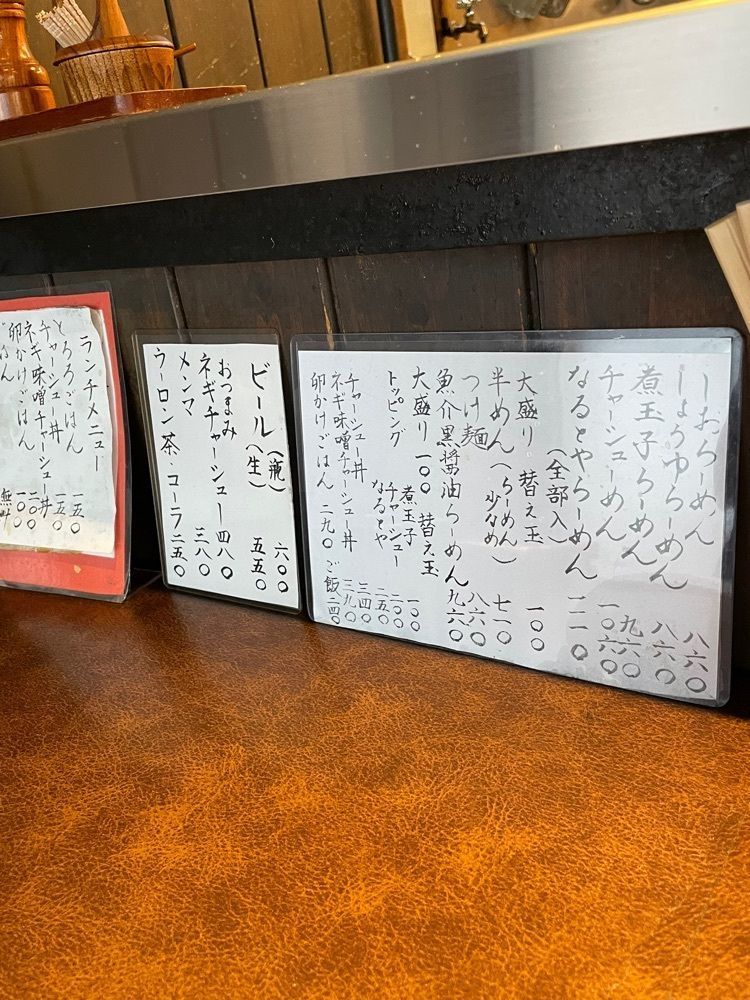 しおらーめん 八六〇
しょうゆらーめん 八六〇
煮玉子らーめん 九六〇
チャーシューめん 一〇六〇
なるとやらーめん 一二一〇
(全部入)
大盛り 替え玉 一〇〇
半めん(らーめん少なめ) 七一〇
つけ麺 八六〇
魚介黒醤油らーめん 九六〇
大盛り 一〇〇 替え玉 一〇〇
トッピング 煮玉子 一〇〇
チャーシュー 二〇〇
なるとや 二五〇
チャーシュー丼 三四〇
ネギ味噌チャーシュー丼 三九〇
卵かけごはん 二九〇 ご飯 二四〇
ビール(瓶) 六〇〇
(生) 五五〇
おつまみ
ネギチャーシュー 四八〇
メンマ 三八〇
ウーロン茶・コーラ 二五〇
ランチメニュー
とろろごはん 一五〇
チャーシュー丼 一五〇
ネギ味噌チャーシュー丼 二〇〇
卵かけごはん 一〇〇
ごはん 無料